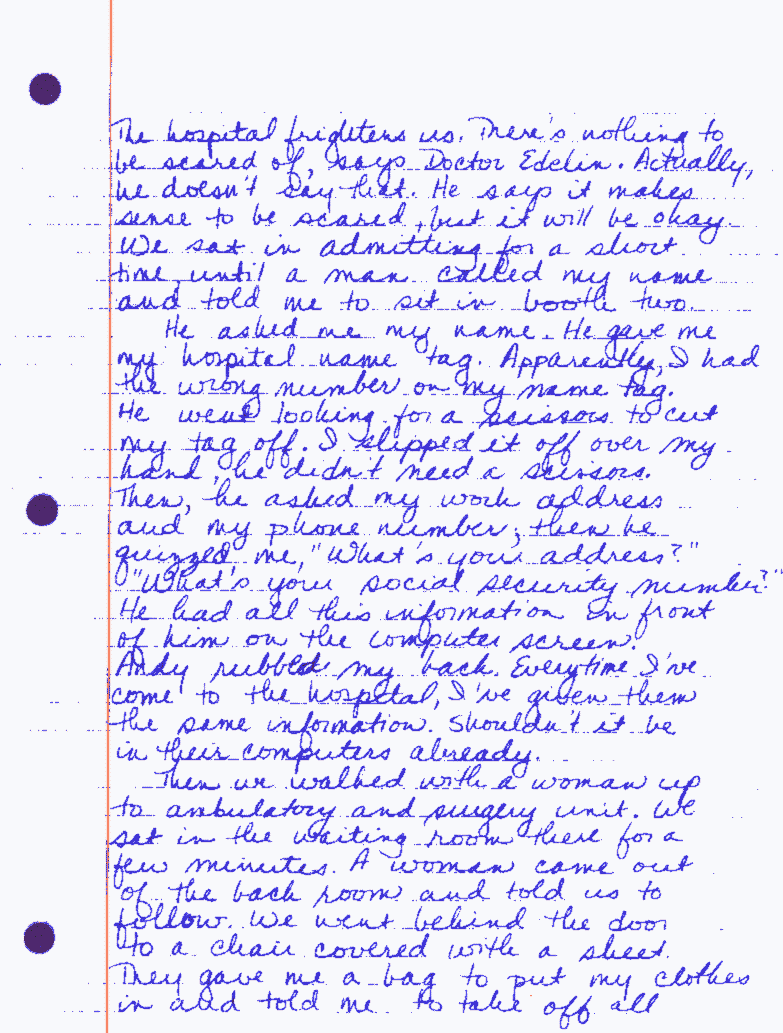 The hospital frightens us. There's nothing to
be scared of, says Doctor Edelin. Actually,
he doesn't say that. He says it makes
sense to be scared, but it will be okay.
We sat in admitting for a short
time until a man called my name
and told me to sit in booth two.
He asked me my name. He gave me
my hospital name tag. Apparently, I had
the wrong number on my name tag.
He went looking for a scissors to cut
my tag off. I slipped it off over my
hand, he didn't need a scissors.
Then, he asked my work address
and my phone number; then he
quizzed me, "What's your address?"
"What's your social security number?"
He had all this information in front
of him on the computer screen.
Andy rubbed my back. Everytime I've
come to the hospital, I've given them
the same information. Shouldn't it be
in their computers already.
Then we walked with a woman up
to ambulatory and surgery unit. We
sat in the waiting room there for a
few minutes. A woman came out
of the back room and told us to
follow. We went behind the door
to a chair covered with a sheet.
They gave me a bag to put my clothes
in and told me to take off all